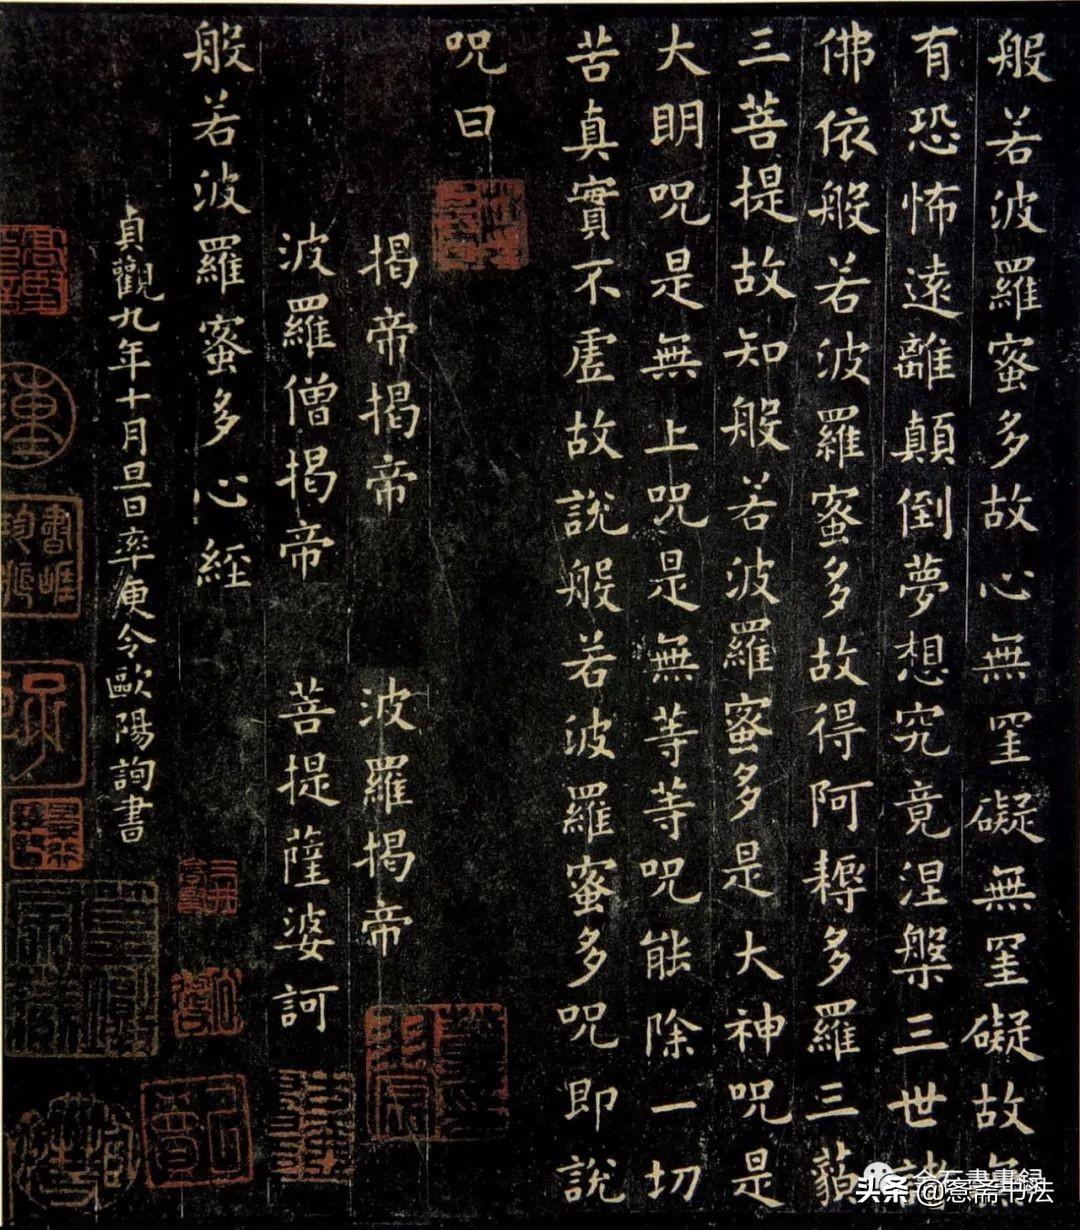 般若波羅蜜多故心無罣礙無罣礙故無
有恐怖遠離顛倒夢想究竟涅槃三世諸
佛依般若波羅蜜多故得阿耨多羅三藐
三菩提故知般若波羅蜜多是大神呪是
大明呪是無上呪是無等等呪能除一切
苦真實不虛故說般若波羅蜜多呪即說
呪曰
揭帝揭帝 波羅揭帝
波羅僧揭帝 菩提薩婆訶
般若波羅蜜多心經
貞觀九年十月旦日率更令歐陽詢書
金石書畫録
头条@愙斋书法